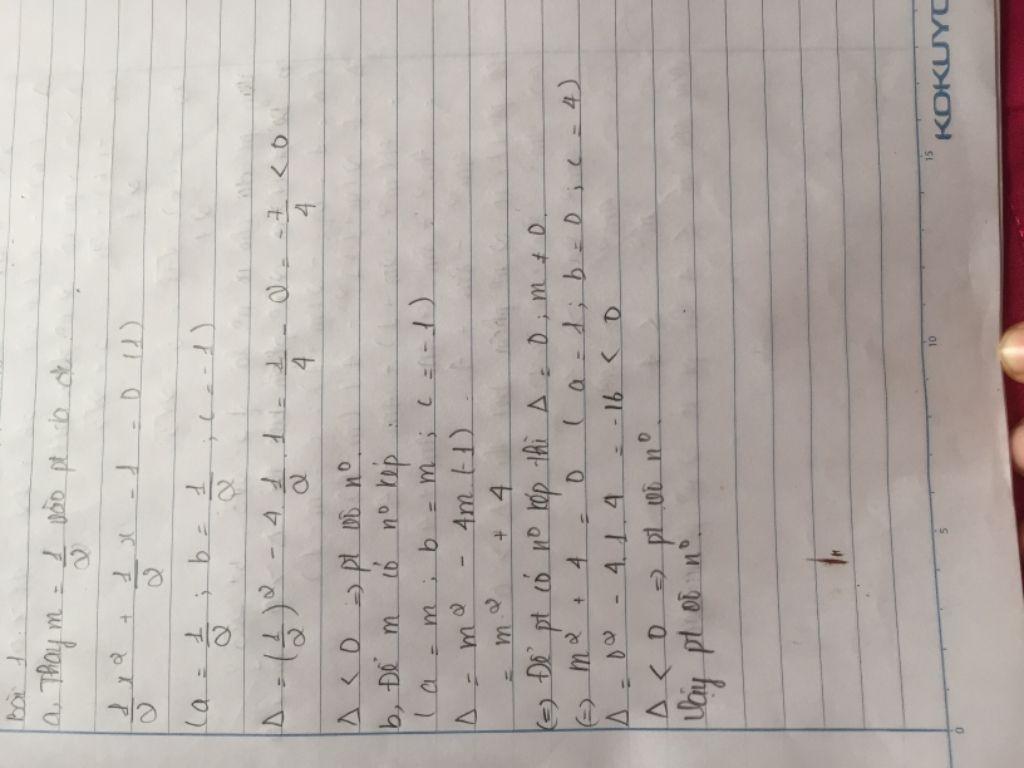 Bài 1
a, Thay m = 1/2 vào pt ta đc
1/2 x² + 1/2 x - 1 = 0 (1)
(a = 1/2 ; b = 1/2 ; c = -1)
Δ = (1/2)² - 4 . 1/2 . 1 = 1/4 - 2 = -7/4 < 0
Δ < 0 => pt vô n⁰
b, Để m có n⁰ kép
(a = m ; b = m ; c = -1)
Δ = m² - 4m (-1)
= m² + 4
(=) Để pt có n⁰ kép thì Δ = 0 ; m ≠ 0
(=) m² + 4 = 0 (a = 1 ; b = 0 ; c = 4)
Δ = 0² - 4.1.4 = -16 < 0
Δ < 0 => pt vô n⁰
Vậy pt vô n⁰
0 5 10 15
KOKUYO